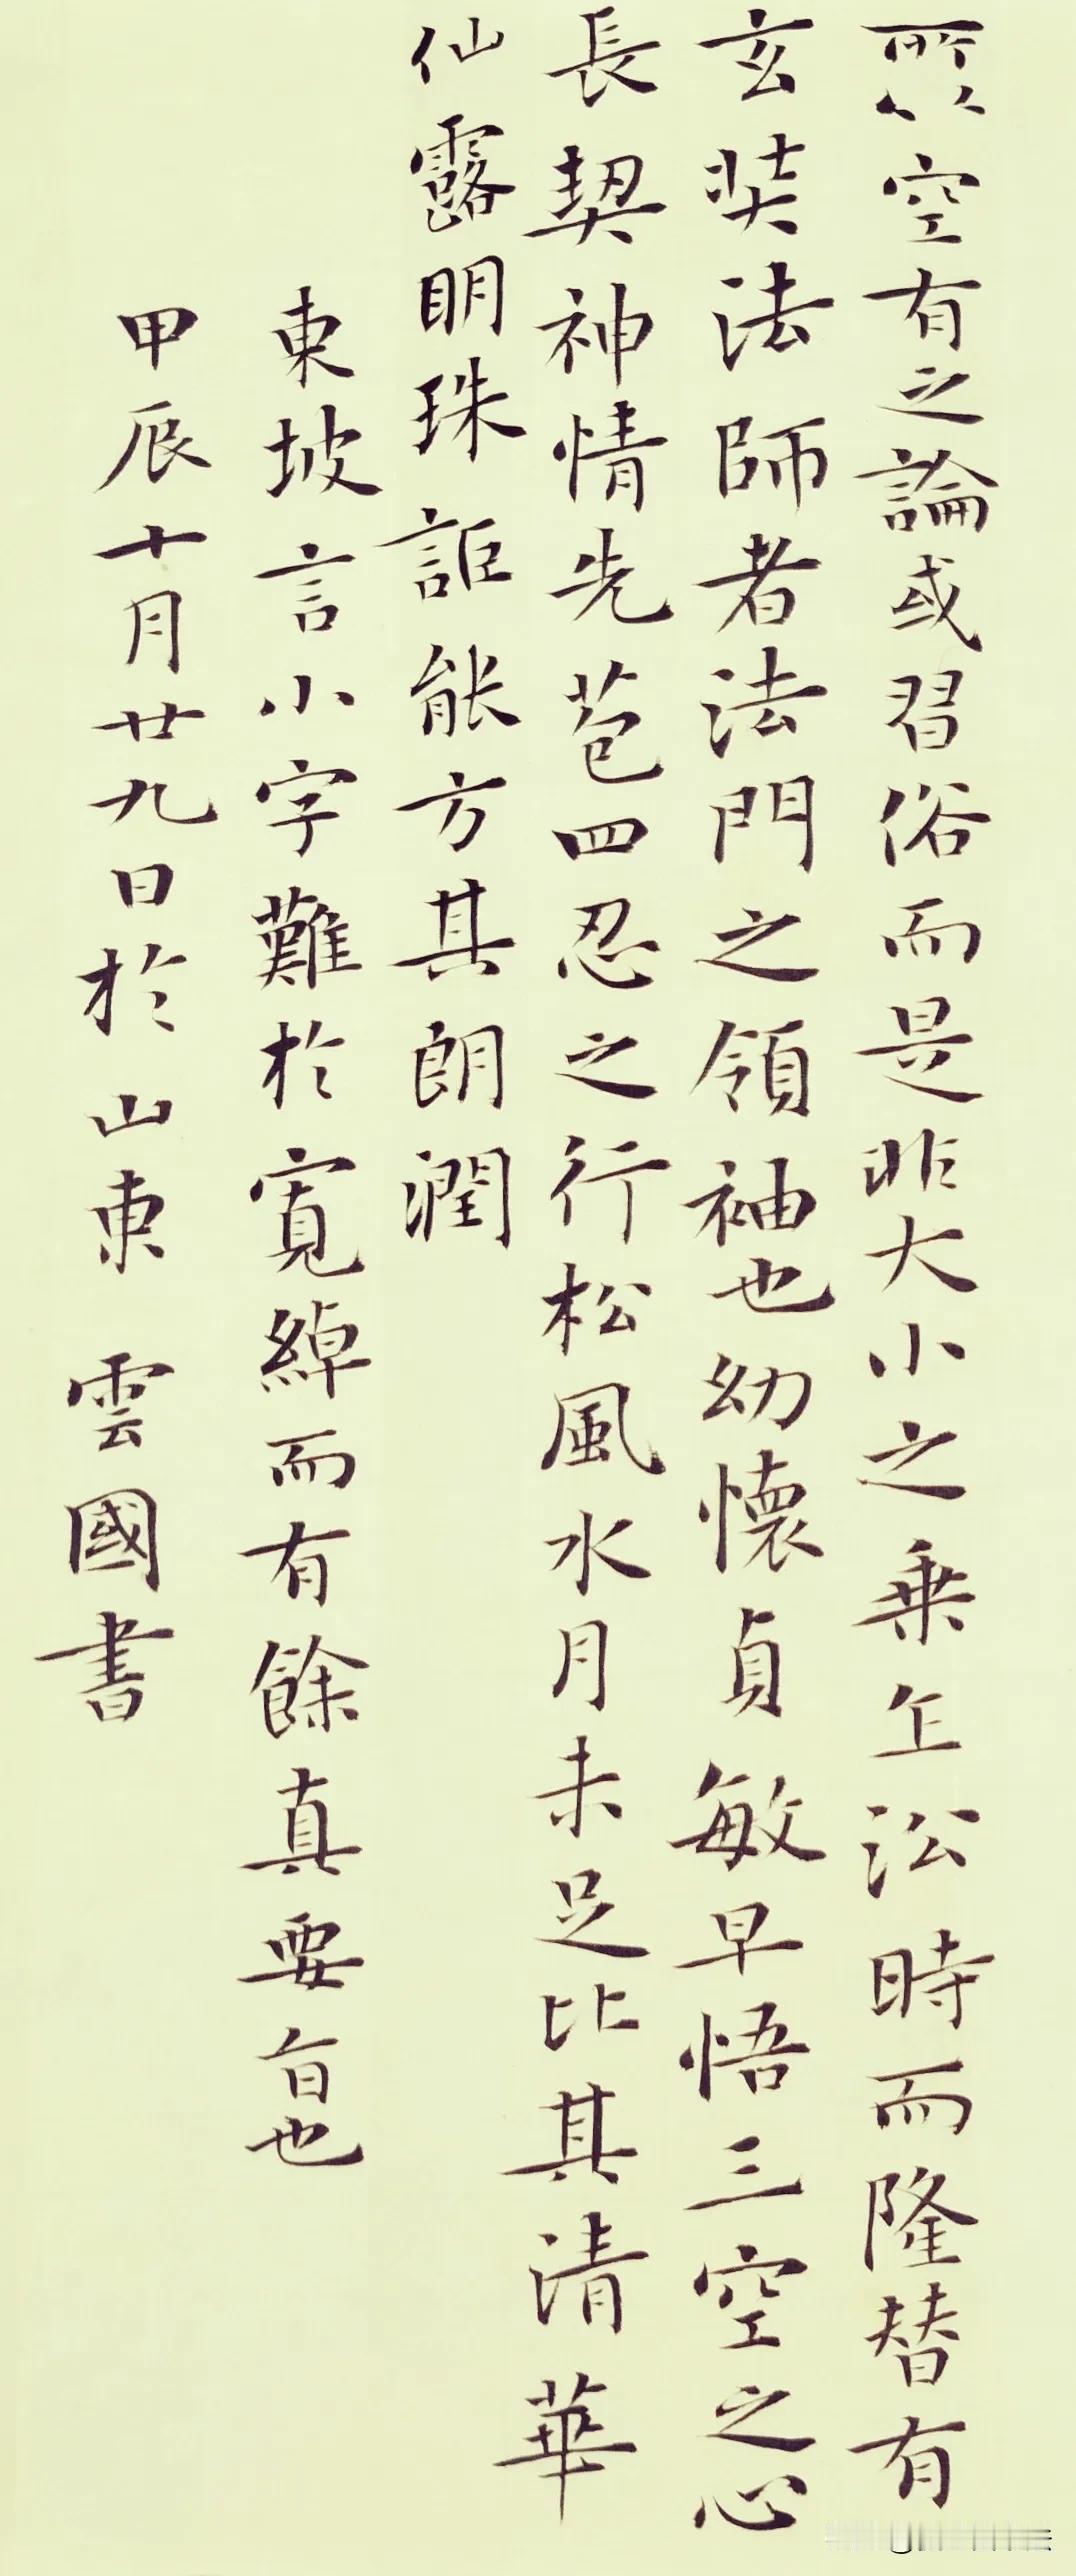 所以空有之論或習俗而是非大小之乘乍㳂時而隆替有
玄奘法師者法門之領袖也幼懷貞敏早悟三空之心
長契神情先苞四忍之行松風水月未足比其清華
仙露明珠詎能方其朗潤
東坡言小字難於寬綽而有餘真要旨也
甲辰十月廿九日於山東 雲國書